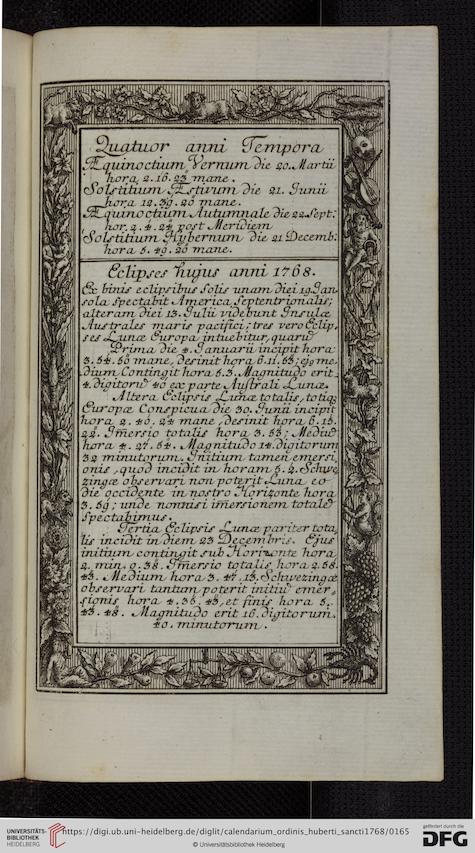 Quatuor anni Tempora
Æquinoctium Vernum die 20. Martii
hora 2. 16. 23 mane.
Solstitium Æstivum die 21. Junii
hora 12. 39. 20 mane.
Æquinoctium Autumnale die 22 Sept:
hor. 2. 4. 24 post Meridiem
Solstitium Hybernum die 21 Decemb:
hora 5. 49. 20 mane.
Eclipses hujus anni 1768.
Ex binis eclipsibus Solis unam diei 19. Jan
sola spectabit America Septentrionalis;
alteram diei 13. Julii videbunt Insulæ
Australes maris pacifici; tres vero Eclip,
ses Lunæ Europa intuebitur, quarū
Prima die 4. Januarii incipit hora
3. 54. 50 mane, desinit hora 6. 11. 53; ejq me-
dium Contingit hora 5. 3. Magnitudo erit
4. digitorū 40 ex parte Australi Lunæ.
Altera Eclipsis Lunæ totalis, totiq
Europæ Conspicua die 30. Junii incipit
hora 2. 40. 24 mane, desinit hora 6. 15.
22. Im̄ersio totalis hora 3. 53; Mediū
hora 4. 27. 54. Magnitudo 14. digitorum
32 minutorum. Initium tamen emersi,
onis, quod incidit in horam 5. 2. Schwe
zingæ observari non poterit Luna eo
die occidente in nostro Horizonte hora
3. 59; unde nonnisi im̄ersionem totalē
Spectabimus.
Tertia Eclipsis Lunæ pariter tota,
lis incidit in diem 23 Decembris. Ejus
initium contingit sub Horizonte hora
2. min. 9. 38. Im̄ersio totalis hora 2. 58.
43. Medium hora 3. 47. 13. Schwezingæ
observari tantum poterit initiū emer,
sionis hora 4. 36. 43, et finis hora 5.
43. 48. Magnitudo erit 16. digitorum.
40. minutorum.
UNIVERSITÄTS-
BIBLIOTHEK
HEIDELBERG
https://digi.ub.uni-heidelberg.de/diglit/calendarium_ordinis_huberti_sancti1768/0165
© Universitätsbibliothek Heidelberg
gefördert durch die
DFG